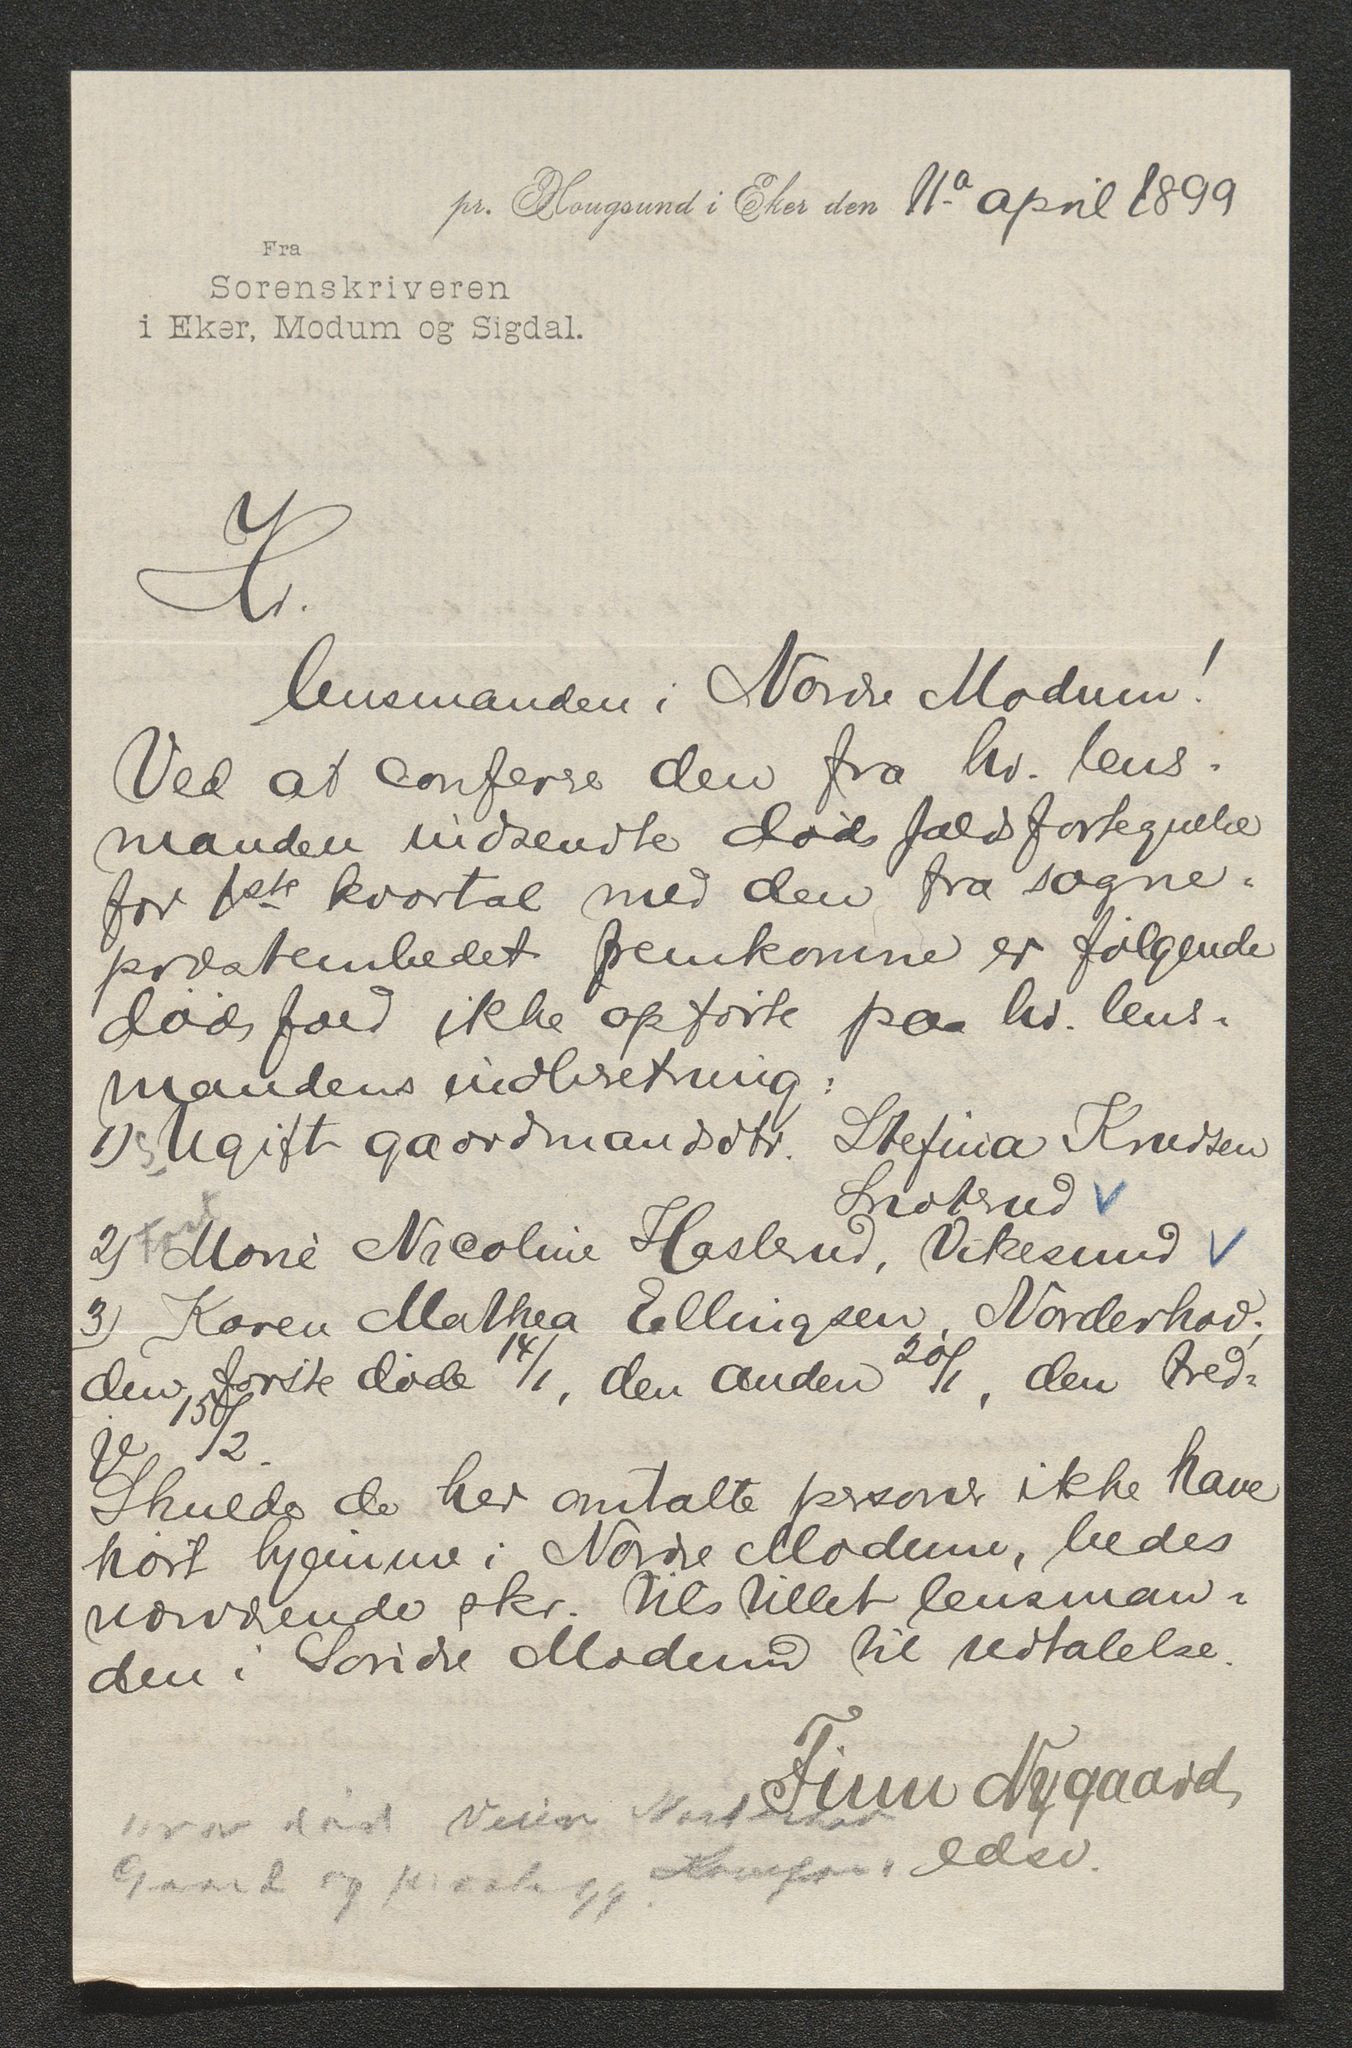 pr. Hougsund i Eker den 11a april 1899
Fra
Sorenskriveren
i Eker, Modum og Sigdal.
Hr.
lensmanden i Nordre Modum!
Ved at conferere den fra hr. lens-
manden indsendte dødsfaldsfortegnelse
for 1ste kvartal med den fra sogne-
præstembedet fremkomne er følgende
dødsfald ikke opførte paa hr. lens-
mandens indberetning:
1) Ugift gaardmandsdtr. Stefina Knudsen
Snoterud
2) Marie Nicoline Haslerud, Vikesund
3) Karen Mathea Ellingsen, Norderhov;
den første døde 14/1, den anden 20/1, den tred-
je 15/2.
Skulde de her omtalte personer ikke have
hørt hjemme i Nordre Modum, bedes
nærværende skr. tilstillet lensman-
den i Søndre Modum til udtalelse.
Finn Nygaard
edsv.
død
Gaard og